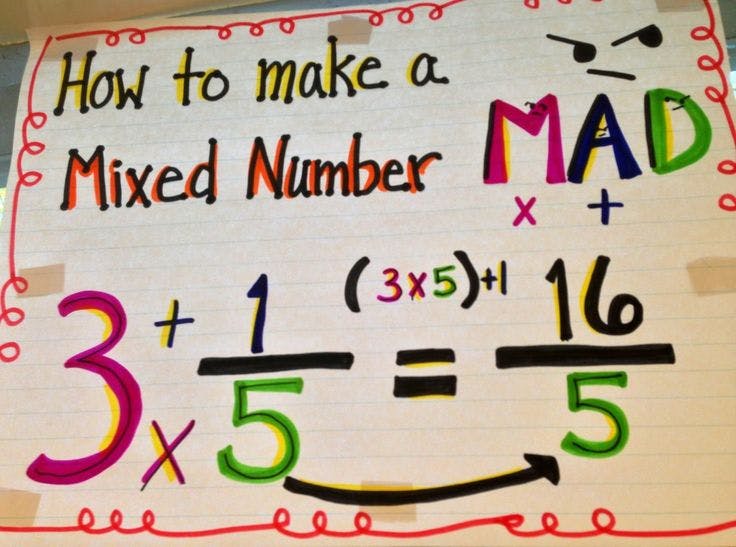 How to make a
Mixed Number MAD
x +
(3x5)+1
3 + 1 = 16
x 5 5